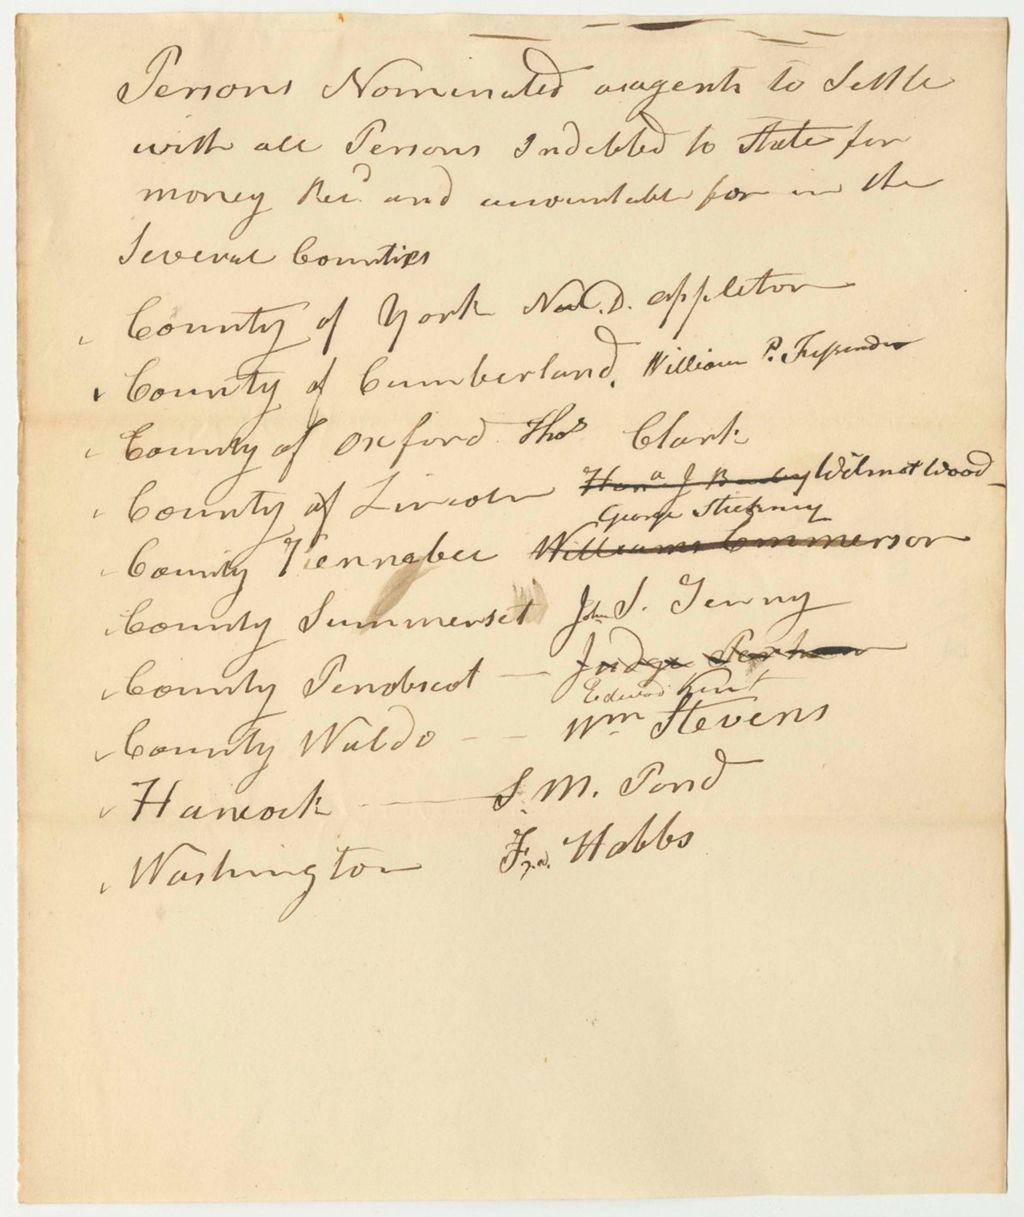 Persons Nominated as agents to Settle
with all Persons Indebted to State for
money Recd and accountable for in the
Several Counties
County of York Nat. D. appleton
County of Cumberland. William P. Fessenden
County of Oxford Thos Clark
County of Lincoln J Wilmot Wood
George Stickney
County Kennebec Williams Emmerson
County Summerset John S. Tenny
County Penobscot — Judge Perham
Edward Kent
County Waldo — — Wm Stevens
Hancock — S. M. Pond
Washington Fred. Hobbs